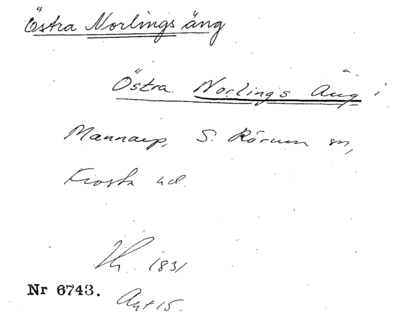 Östra Norlings äng
Östra Norlings Äng i
Mannarp, S. Rörum sn,
Frosta hd.
1831
Nr 6743. Akt 15.